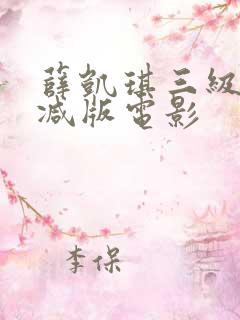 薛凱琪三級
减版電影
李保